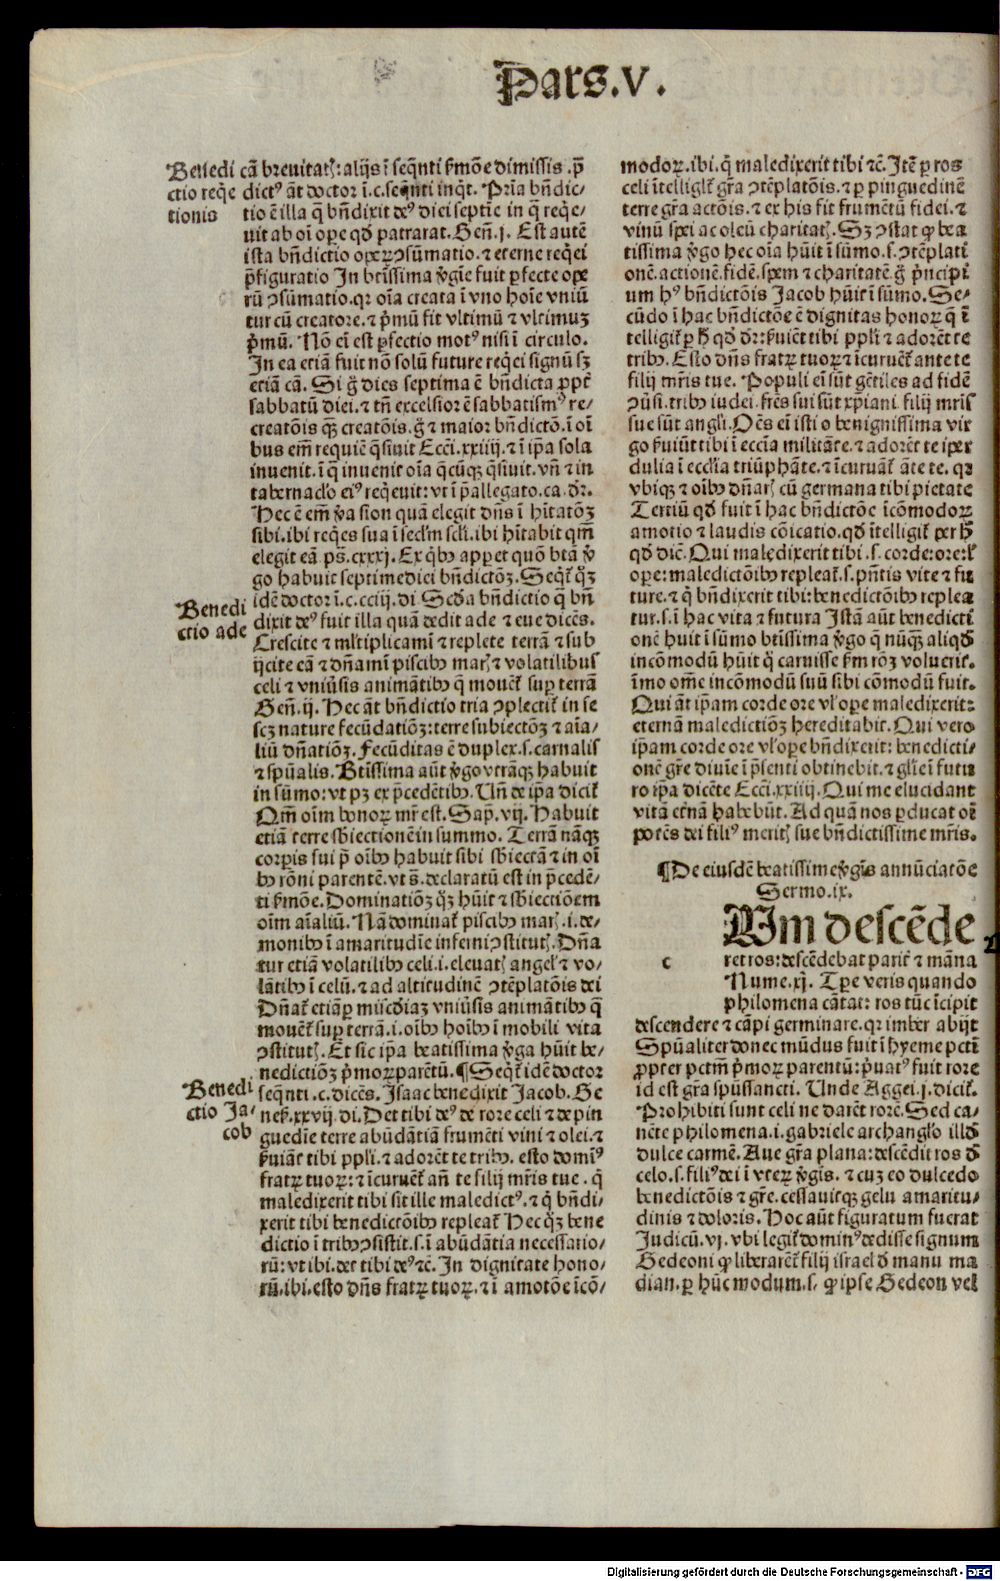 Pars.V.
Benedi
ctio reqe
tionis
cã breuitatꝭ: alijs ĩ seq̃nti ẜmõe dimissis .p̃
dictꝰ ãt doctor ĩ.c.seq̃nti inq̃t. Pria bñdic-
tio ẽ illa q̃ bñdixit deꝰ diei septie in q̃ reqe-
uit ab oĩ oꝑe qđ patrarat. Beñ.j. Est autẽ
ista bñdictio oꝑeꝝ ꝯsũmatio .⁊ eterne reqei
p̃figuratio In btissima ꝟgie fuit ꝑfecte oꝑe
rũ ꝯsũmatio. qr oĩa creata ĩ vno hoĩe vniũ
tur cũ creatore .⁊ pͥmũ fit vltimũ ⁊ vltimuꝫ
pͥmũ. Nõ eĩ est ꝑfectio motꝰ nisi ĩ circulo.
In ea etiã fuit nõ solũ future reqei signũ sꝫ
etiã cã. Si g̊ dies septima ẽ bñdicta ꝓpt̃
sabbatũ diei .⁊ tñ excelsior ẽ sabbatismꝰ re-
creatõis qꝫ creatõis. g̊ ⁊ maior bñdictõ. ĩ oĩ
bus em̃ requiẽ q̃siuit Ecci.xxiiij.⁊ ĩ ip̃a sola
inuenit. ĩ q̃ inuenit oĩa q̃cũqꝫ q̃siuit. vñ ⁊ in
tabernac̃lo eiꝰ reqeuit: vt ĩ p̃allegato .ca. dr̃.
Hec ẽ em̃ ꝟa sion quã elegit dñs ĩ hĩtatõꝫ
sibi. ibi reqes sua ĩ sec̃lm sc̃li. ibi hĩtabit qm̃
elegit eã ps̃.cxxxj. Ex qͥbꝰ apꝑet quõ btã ꝟ
go habuit septime diei bñdictõꝫ. Seqt̃ qꝫ
Benedi
ctio ade
idẽ doctor ĩ.c.cciij. di Scđa bñdictio q̃ bñ
dixit deꝰ fuit illa quã dedit ade ⁊ eue dicẽs.
Crescite ⁊ ml̃tiplicamĩ ⁊ replete terrã ⁊ sub
ijcite eã ⁊ dñamĩ piscibꝰ marꝭ ⁊ volatilibus
celi ⁊ vniũsis animãtibꝰ q̃ mouẽt̃ suꝑ terrã
Beñ.ij. Hec ãt bñdictio tria ꝯplectit̃ in se
scꝫ nature fecũdatiõꝫ: terre subiectõꝫ ⁊ aĩa-
liũ dñatiõꝫ. Fecũditas ẽ duplex .s. carnalis
⁊ spũalis. Btissima aũt ꝟgo vtrãqꝫ habuit
in sũmo: vt pꝫ ex p̃cedẽtibꝰ. Uñ de ip̃a dicit̃
Qm̃ oĩm bonoꝝ mr̃ est. Sap̃. vij. Habuit
etiã terre sb̃iectionẽ in summo. Terrã nãqꝫ
corꝑis sui p̃ oĩbꝰ habuit sibi sb̃iectã ⁊ in oĩ
bꝰ rõni parentẽ. vt s̃. declaratũ est in p̃cedẽ-
ti ẜmõe. Dominatiõꝫ qꝫ hũit ⁊ sb̃iectiõem
oĩm aĩaliũ. Nã dominat̃ piscibꝰ marꝭ .i. de-
monibꝰ ĩ amaritudie inferni ꝯstitutꝭ. Dña
tur etiã volatilibꝰ celi .i. eleuatꝭ angel̃ ⁊ vo-
lãtibꝰ ĩ celũ .⁊ ad altitudinẽ ꝯtẽplatõis dei
Dñat̃ etiã ꝑ miẜcđiaꝫ vniũsis animãtibꝰ q̃
mouẽt̃ suꝑ terrã .i. oĩbꝰ hoĩbꝰ ĩ mobili vita
ꝯstitutꝭ. Et sic ip̃a beatissima ꝟga hũit be-
nedictiõꝫ pͥmoꝝ parẽtũ. ¶Seqt̃ idẽ doctor
Benedi
ctio Ja-
cob
seq̃nti .c. dicẽs. Isaac benedixit Jacob. Ge
neẜ.xxvij. di. Det tibi deꝰ de rore celi ⁊ de pin
guedie terre abũdãtiã frumẽti vini ⁊ olei .⁊
ẜuiãt tibi ppl̃i .⁊ adorẽt te tribꝰ. esto domĩꝰ
fratꝝ tuoꝝ: ⁊ ĩcuruẽt̃ añ te filij mr̃is tue . q̃
maledixerit tibi sit ille maledictꝰ .⁊ q̃ bñdi-
xerit tibi benedictõibꝰ repleat̃ Hec qꝫ bene
dictio ĩ tribꝰ ꝯsistit .s. ĩ abũdãtia necessario-
rũ: vt ibi. det tibi deꝰ ⁊c̃. In dignitate hono-
rũ. ibi. esto dñs fratꝝ tuoꝝ .⁊ ĩ amotõe ĩcõ-
modoꝝ .ibi. q̃ maledixerit tibi ⁊c̃. Itẽ ꝑ ros
celi ĩtelligit̃ gr̃a ꝯtẽplatõis .⁊ ꝑ pinguedinẽ
terre gr̃a actõis .⁊ ex his fit frumẽtũ fidei .⁊
vinũ spei ac oleũ charitatꝭ. Sꝫ ꝯstat ꝙ bea
tissima ꝟgo hec oĩa hũit ĩ sũmo .s. ꝯtẽplati
onẽ. actionẽ. fidẽ. spem ⁊ charitatẽ. g̊ pͥncipi
um hꝰ bñdictõis Jacob hũit ĩ sũmo. Se-
cũdo ĩ hac bñdictõe ẽ dignitas honoꝝ q̃ ĩ
telligit̃ ꝑ h̊ qđ dr̃: ẜuiẽt tibi ppl̃i ⁊ adorẽt te
tribꝰ. Esto dñs fratꝝ tuoꝝ ⁊ ĩcuruẽt̃ ante te
filij mr̃is tue. Populi eĩ sũt gẽtiles ad fidẽ
ꝯũsi. tribꝰ iudei. fr̃es sui sũt xp̃iani. filij mr̃is
sue sũt angl̃i. Oẽs eĩ isti o benignissima vir
go ẜuiũt tibi ĩ eccĩa militãte .⁊ adorẽt te iꝑer
dulia ĩ eccl̃ia triũphãte .⁊ ĩcuruãt̃ ãte te. qr
vbiqꝫ ⁊ oĩbꝰ dñarꝭ cũ germana tibi pietate
Tertiũ qđ fuit ĩ hac bñdictõe ĩcõmodoꝝ
amotio ⁊ laudis cõicatio. qđ ĩtelligit̃ ꝑer h̊
qđ dic̃. Qui maledixerit tibi .s. corde: ore: l̃
oꝑe: maledictõibꝰ repleat̃ .s. pñtis vite ⁊ fu
ture .⁊ q̃ bñdixerit tibi: benedictõibꝰ replea
tur .s. ĩ hac vita ⁊ futura Istã aũt benedicti
onẽ huit ĩ sũmo btissima ꝟgo q̃ nũqꝫ aliqđ
incõmodũ hũit q̃ caruisse ẜm rõꝫ voluerit̃.
ĩmo om̃e incõmodũ suũ sibi cõmodũ fuit.
Qui ãt ip̃am corde ore vl̃ oꝑe maledixerit:
eternã maledictiõꝫ hereditabit. Qui vero
ip̃am corde ore vl̃ oꝑe bñdixerit: benedicti-
onẽ gr̃e diuie ĩ p̃senti obtinebit .⁊ gl̃ie ĩ futu
ro ip̃a dicẽte Ecci.xxiiij. Qui me elucidant
vitã et̃nã habebũt. Ad quã nos ꝑducat oĩ
potẽs dei filiꝰ meritꝭ sue bñdictissime mr̃is.
¶De eiusdẽ beatissime ꝟgis annũciatõe
Sermo.ix.
c
Um descẽde
ret ros: descẽdebat parit̃ ⁊ mãna
Nume.xj. Tꝑe veris quando
philomena cãtat: ros tũc ĩcipit
descendere ⁊ cãpi germinare. qr imber abijt
Spũaliter donec mũdus fuit ĩ hyeme pctĩ
ꝓpter pctm̃ pͥmoꝝ parentũ: pͥuatꝰ fuit rore
id est gr̃a spũssancti. Unde Aggei.j. dicit̃.
Prohibiti sunt celi ne darẽt rorẽ. Sed ca-
nẽte philomena .i. gabriele archangl̃o illđ
dulce carmẽ. Aue gr̃a plana: descẽdit ros đ
celo .s. filiꝰ dei ĩ vteꝝ ꝟgis .⁊ cuꝫ eo dulcedo
benedictõis ⁊ gr̃e. cessauitqꝫ gelu amaritu-
dinis ⁊ doloris. Hoc aũt figuratum fuerat
Judicũ.vj. vbi legit̃ dominꝰ dedisse signum
Gedeoni ꝙ liberarẽt̃ filij israel đ manu ma
dian. ꝑ hũc modum .s. ꝙ ipse Gedeon vel
Digitalisierung gefördert durch die Deutsche Forschungsgemeinschaft - DFG